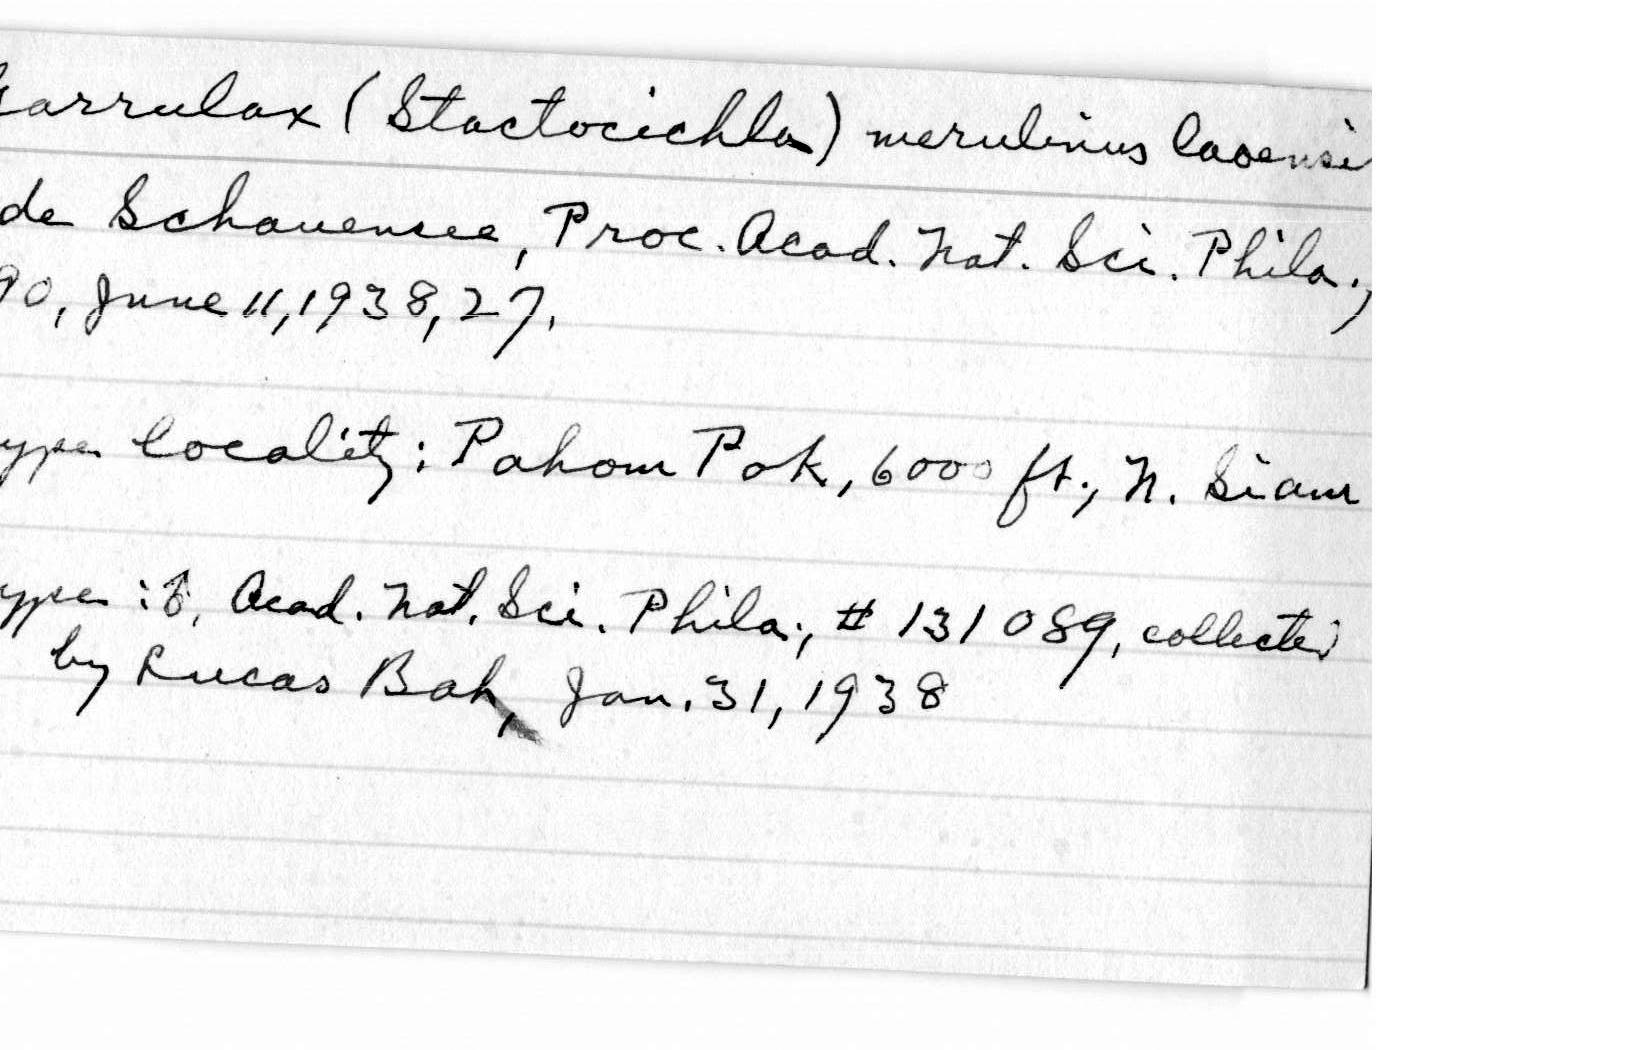 Garrulax (Stactocichla) merulinus laoensi
de Schauensee, Proc. Acad. Nat. Sci. Phila.,
90, June 11, 1938, 27.
ype locality: Pahom Pok, 6000 ft., N. Siam
ype: ♂, Acad. Nat. Sci. Phila., # 131089, collected
by Lucas Bah, Jan. 31, 1938